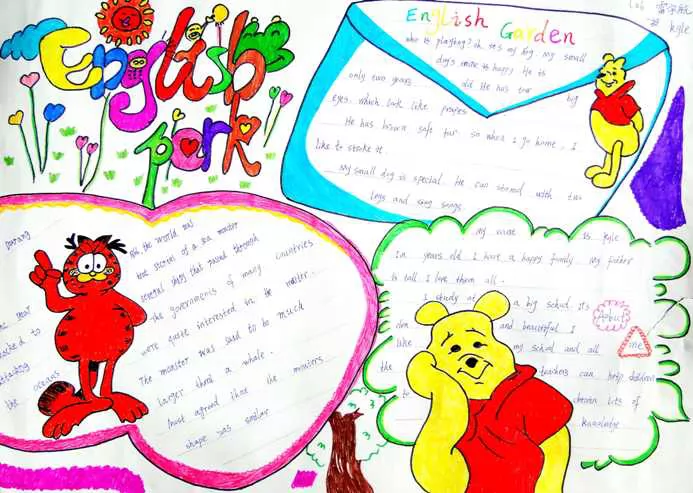 English
park
kyle
English Garden
is playing? my dog. My small
dog's name is happy. He is
only two years old. He has two big
eyes. Which look like
He has brown soft fur so when I go home. I
like to stroke it
My small dog is special. He can with two
legs and sing songs
the world was
the secret of a sea
several ships that passed through
year
the governments of many countries
to
were quite interested in the matter.
The monster was said to be much
the oceans
larger than a whale.
Most agreed the
shape was
my name is kyle
years old. I have a happy family. My father
is tall I love them all.
I study at a big school. its
About
and beautiful. I
like my school and all
me
the teachers can help children
to lots of
knowledge